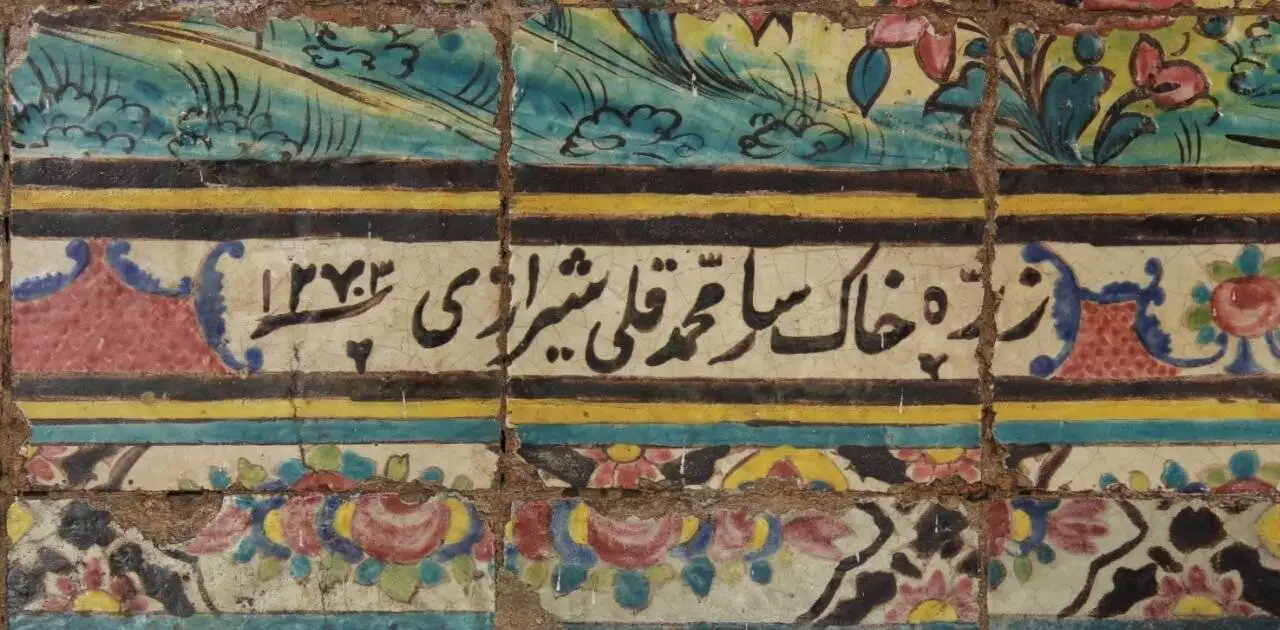 زرّه خاک سار محمّد قلی شیرازی ۱۲۷۳